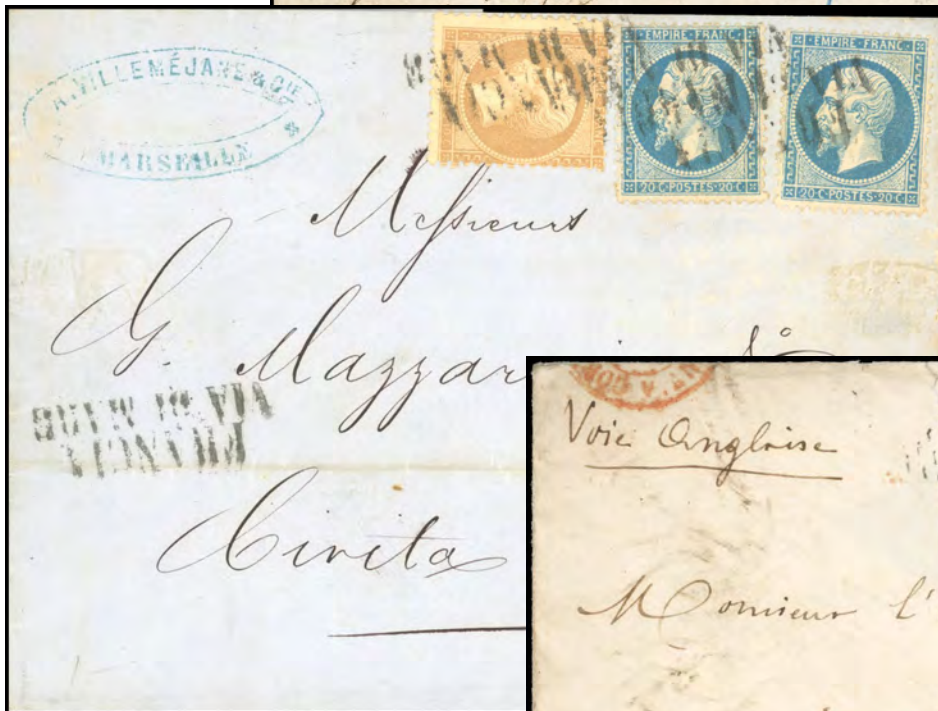 A. VILLEMÉJANE & CIE
MARSEILLE
EMPIRE FRANC
20 C POSTES 20 C
EMPIRE FRANC
20 C POSTES 20 C
Messieurs
G. Mazzar
FRANCIA
VIA DI MARE
Civita
Voie Anglaise
Monsieur l'